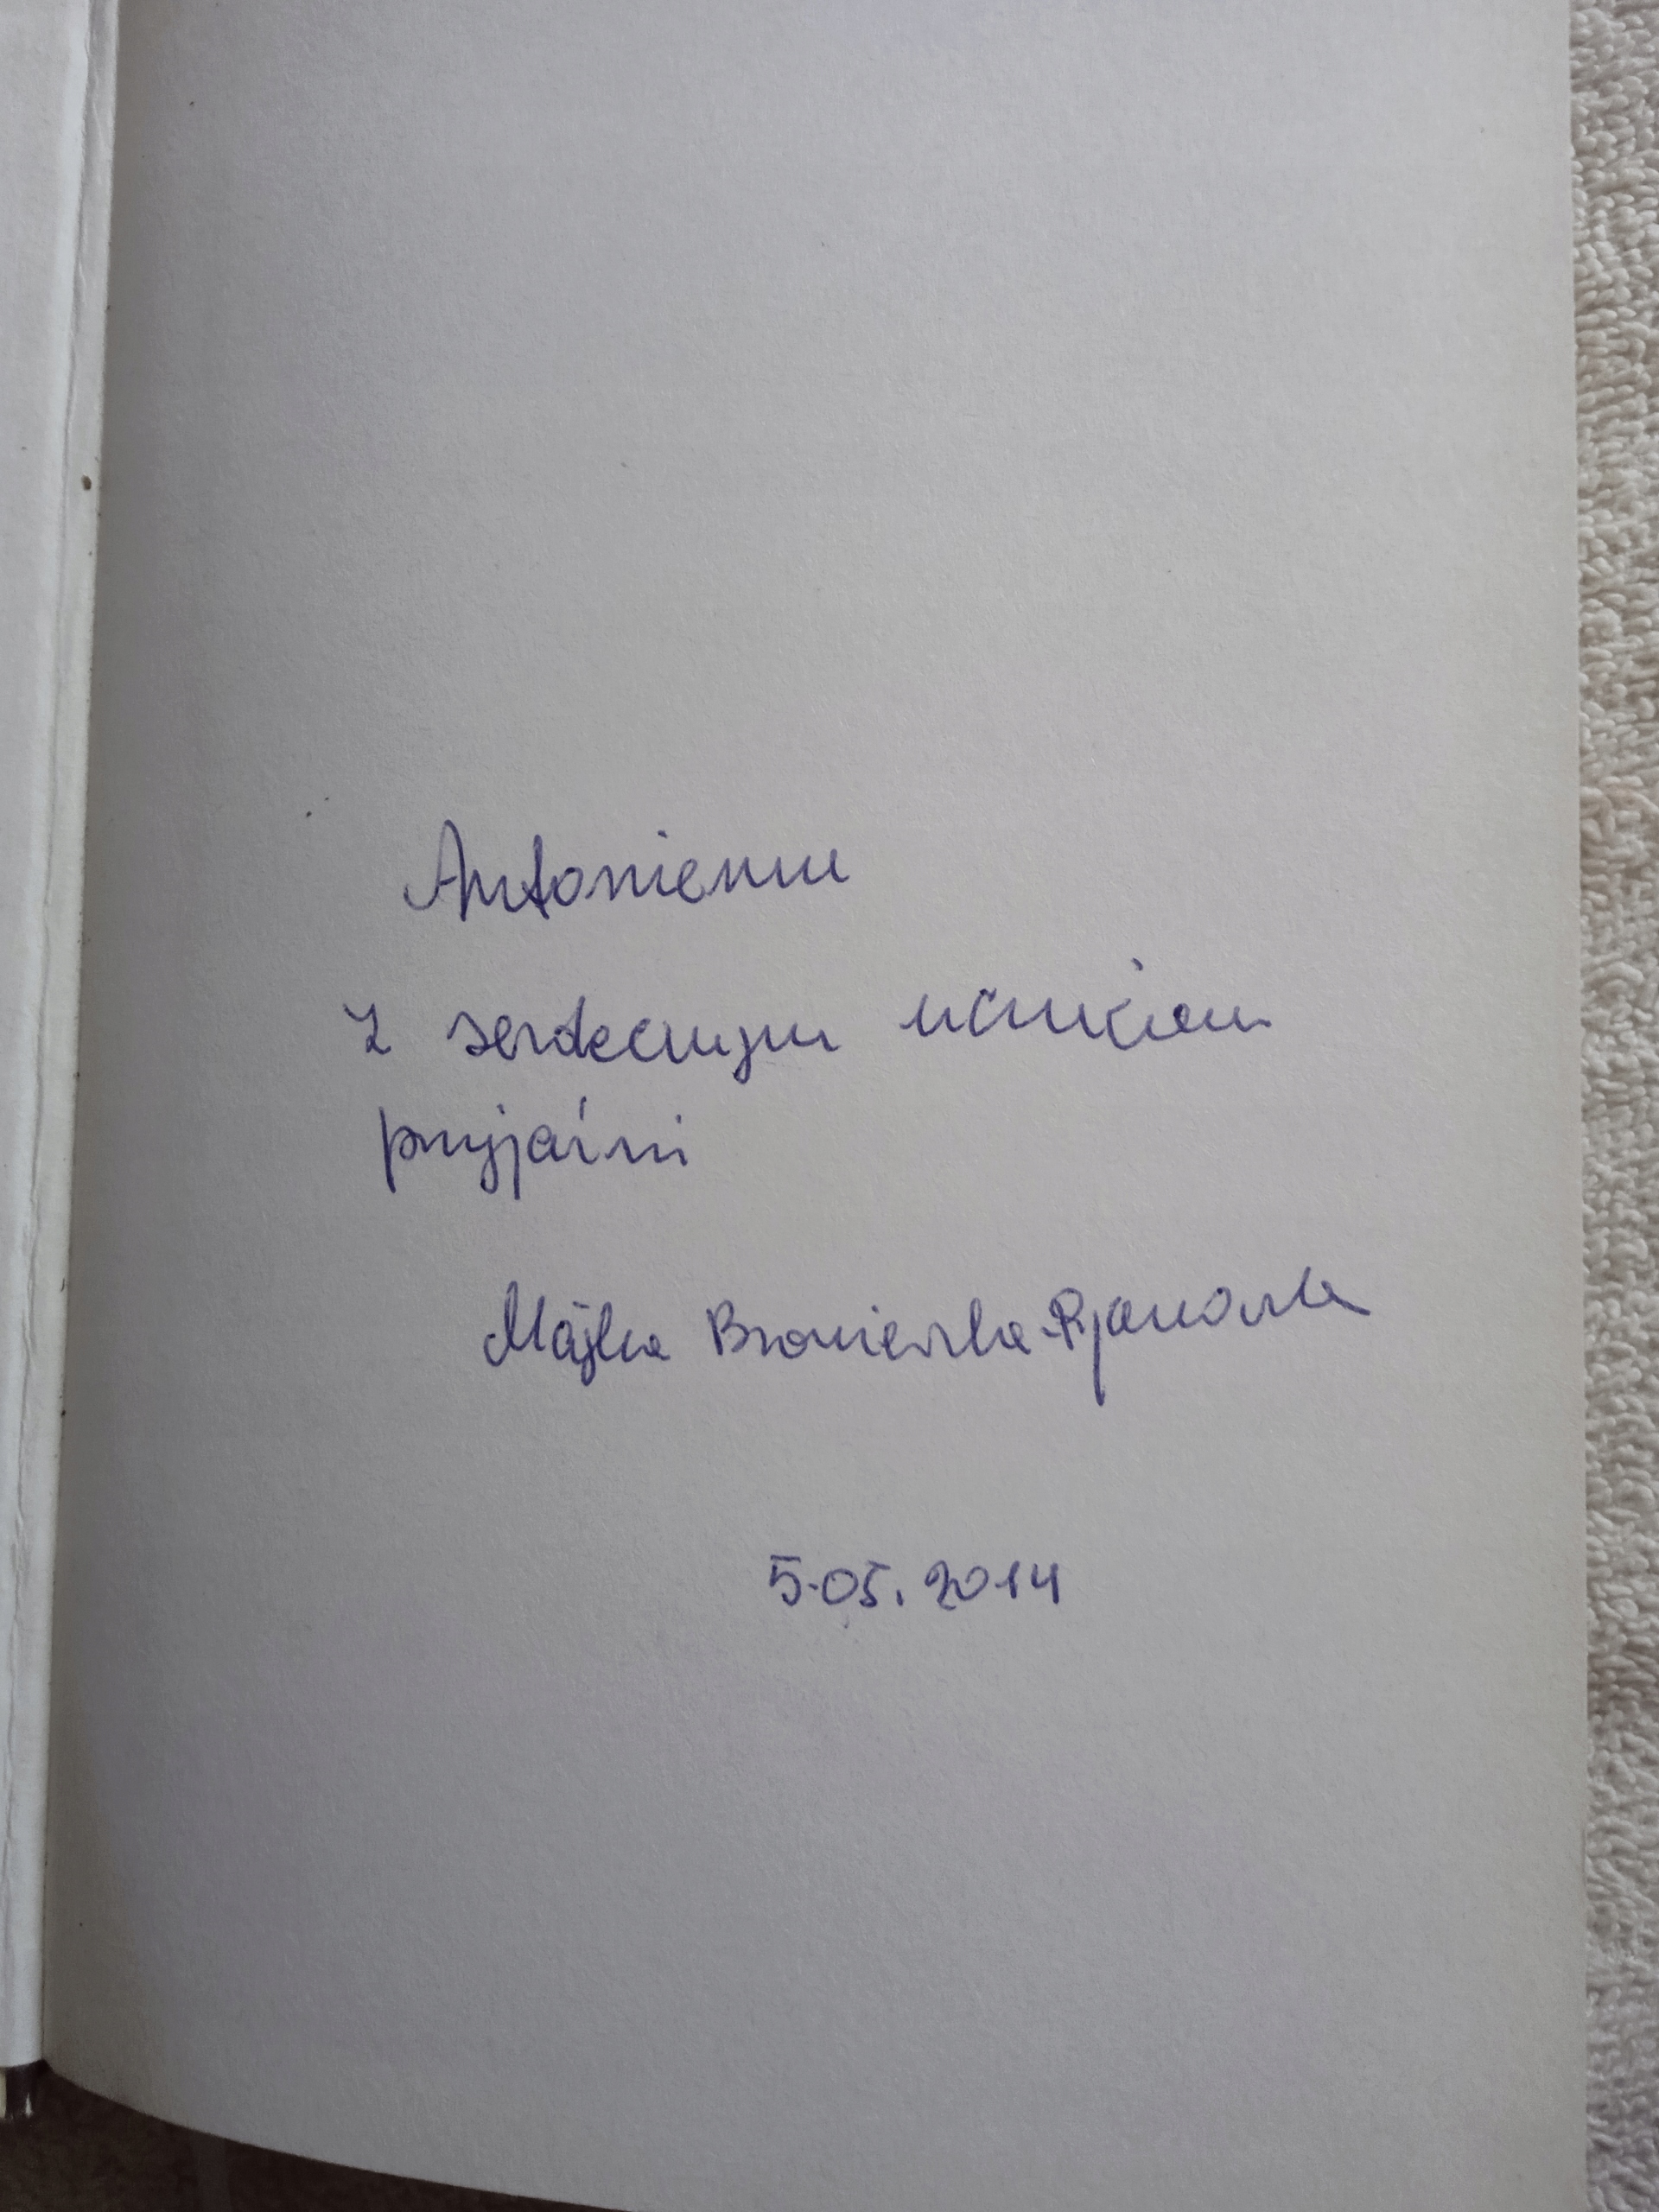 Antoniemu
z serdecznym uczuciem
przyjaźni
Majka Broniewska-Pijanowska
5.05.2014